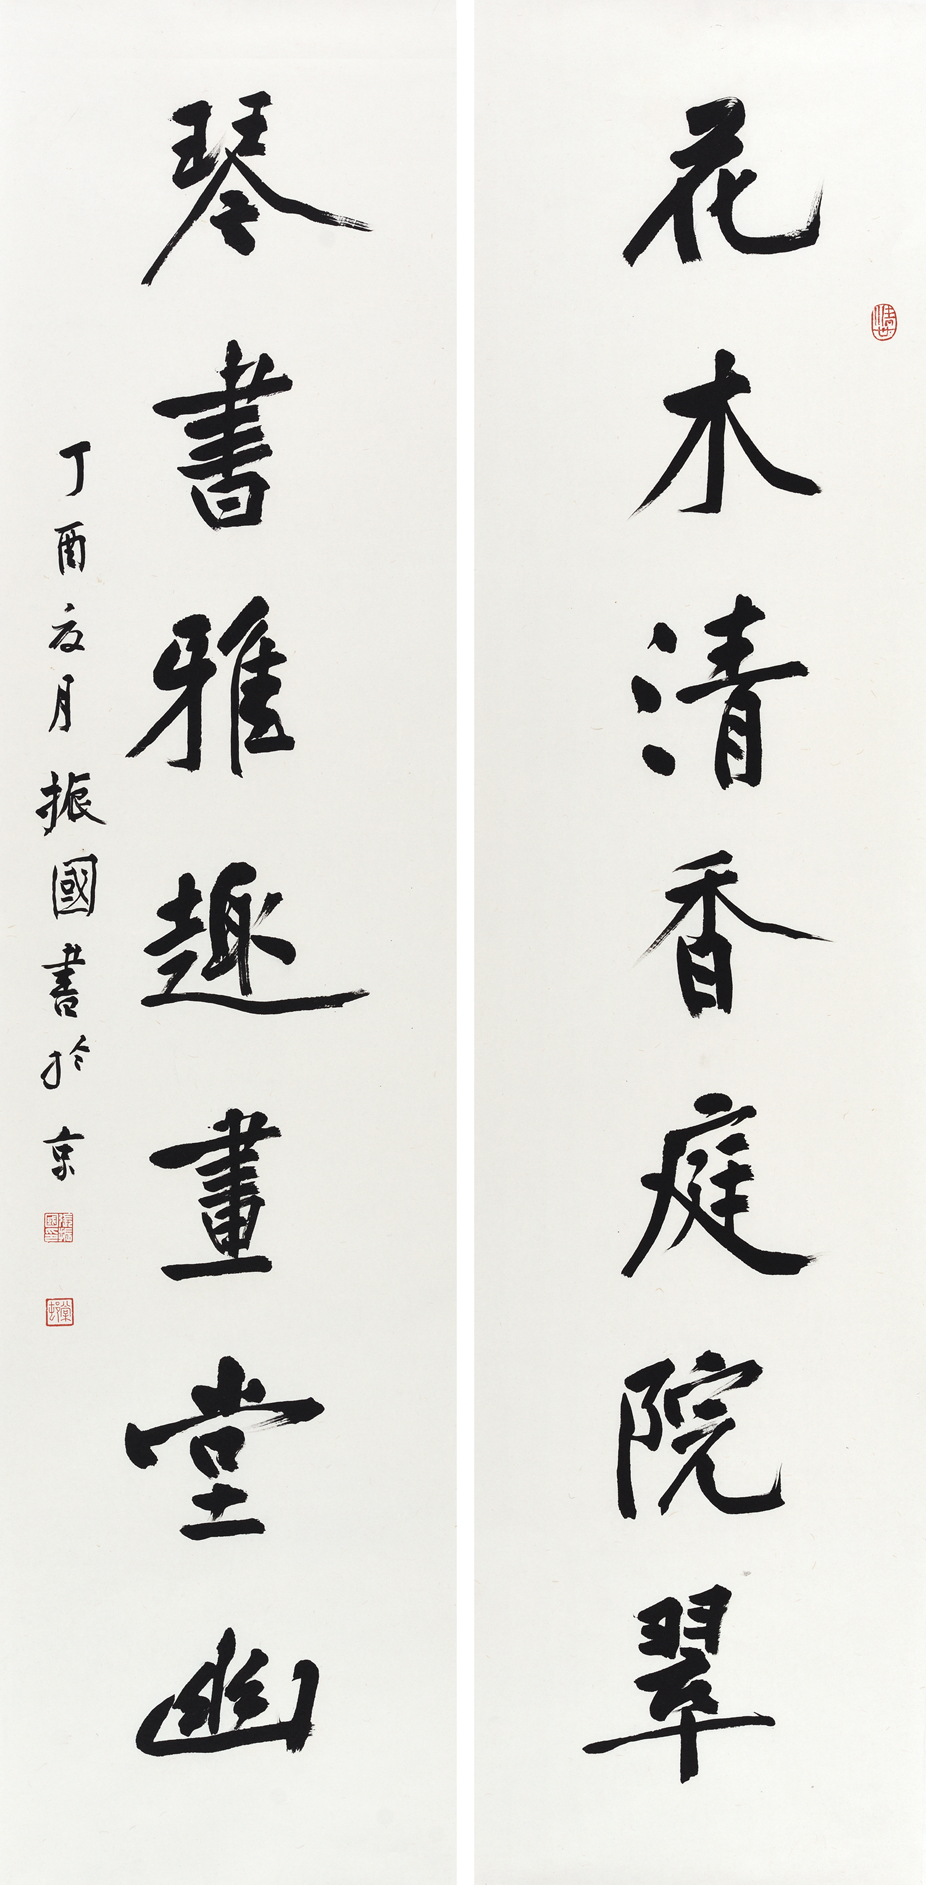 花木清香庭院翠
琴書雅趣畫堂幽
丁酉夏月振國書於京